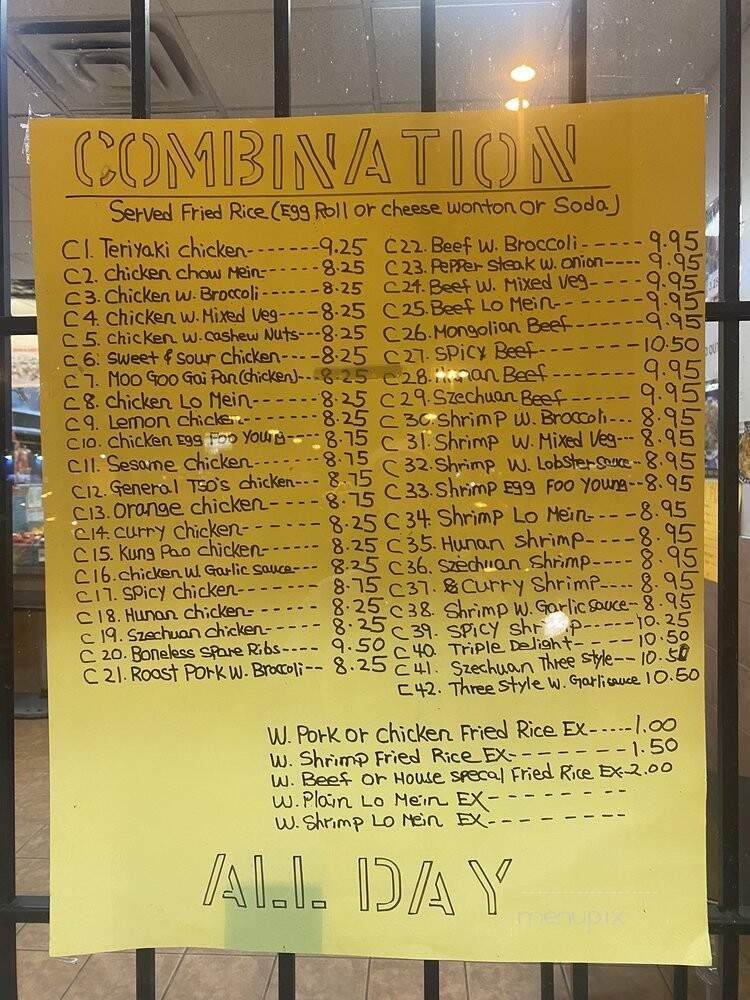 COMBINATION
Served Fried Rice (Egg Roll or cheese wonton or Soda)
C1. Teriyaki chicken-------9.25
C2. chicken chow Mein------8.25
C3. Chicken w. Broccoli-----8.25
C4. chicken w. Mixed Veg---8.25
C5. chicken w. cashew Nuts---8.25
C6. sweet & sour chicken----8.25
C7. Moo Goo Gai Pan(chicken)--8.25
C8. chicken Lo Mein-----8.25
C9. Lemon chicken------8.25
C10. chicken Egg Foo Young---8.75
C11. Sesame chicken-----8.75
C12. General TSO's chicken---8.75
C13. orange chicken------8.75
C14. curry chicken------8.25
C15. Kung Pao chicken----8.25
C16. chicken W. Garlic sauce---8.25
C17. spicy chicken------8.75
C18. Hunan chicken-----8.25
C19. Szechuan chicken----8.25
C20. Boneless spare Ribs----9.50
C21. Roast Pork w. Broccoli--8.25
C22. Beef w. Broccoli-----9.95
C23. Pepper steak w. onion----9.95
C24. Beef w. Mixed Veg----9.95
C25. Beef Lo Mein------9.95
C26. Mongolian Beef-----9.95
C27. Spicy Beef------10.50
C28. Hunan Beef-----9.95
C29. Szechuan Beef----9.95
C30. Shrimp w. Broccoli---8.95
C31. Shrimp w. Mixed Veg---8.95
C32. Shrimp w. Lobster sauce--8.95
C33. Shrimp Egg Foo Young--8.95
C34. Shrimp Lo Mein----8.95
C35. Hunan shrimp-----8.95
C36. Szechuan Shrimp----8.95
C37. & Curry Shrimp----8.95
C38. Shrimp w. Garlic sauce--8.95
C39. Spicy Shrimp-----10.25
C40. Triple Delight-----10.50
C41. Szechuan Three style---10.50
C42. Three Style w. Garlisauce 10.50
W. Pork or chicken Fried Rice Ex-----1.00
W. Shrimp Fried Rice Ex-------1.50
W. Beef or House specal Fried Rice Ex-2.00
W. Plain Lo Mein EX--------
W. Shrimp Lo Mein EX--------
ALL DAY
menupix